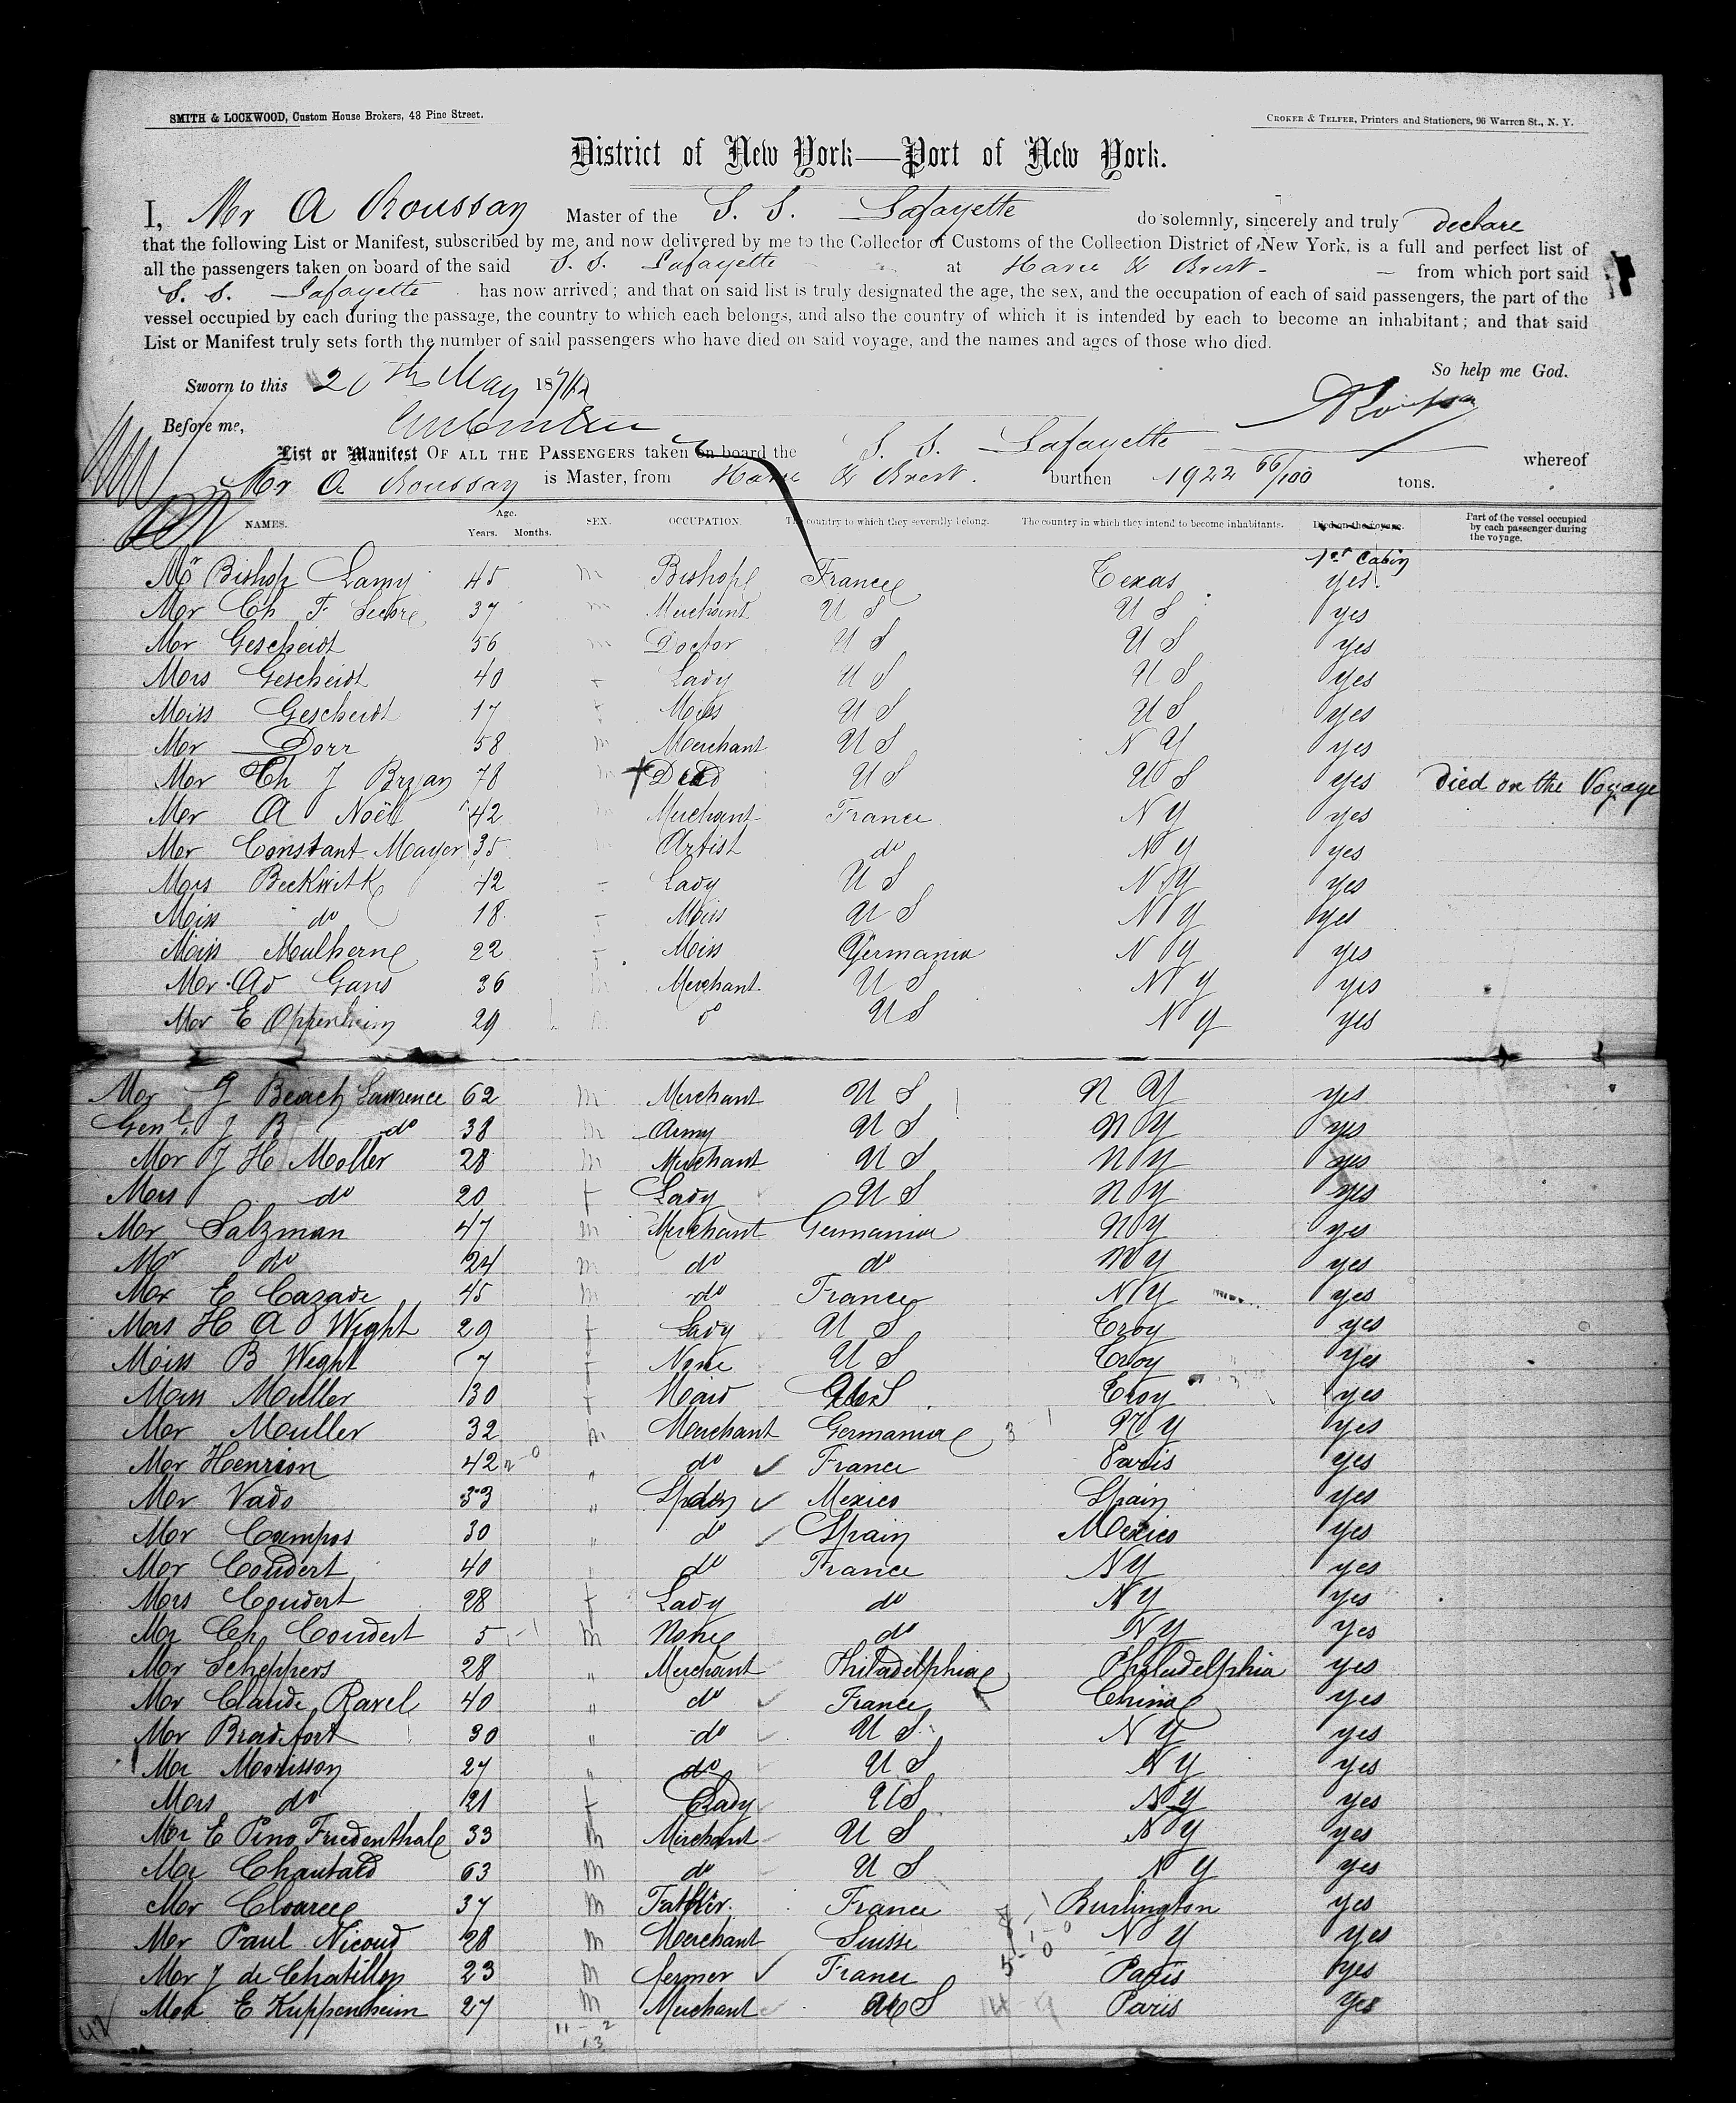 SMITH & LOCKWOOD, Custom House Brokers, 43 Pine Street.
CROKER & TELFER, Printers and Stationers, 96 Warren St., N. Y.
District of New York—Port of New York.
I, Mr A Roussan Master of the S. S. Lafayette do solemnly, sincerely and truly declare
that the following List or Manifest, subscribed by me, and now delivered by me to the Collector of Customs of the Collection District of New York, is a full and perfect list of
all the passengers taken on board of the said S. S. Lafayette at Havre & Brest from which port said
S. S. Lafayette has now arrived; and that on said list is truly designated the age, the sex, and the occupation of each of said passengers, the part of the
vessel occupied by each during the passage, the country to which each belongs, and also the country of which it is intended by each to become an inhabitant; and that said
List or Manifest truly sets forth the number of said passengers who have died on said voyage, and the names and ages of those who died.
So help me God.
Sworn to this May 18
Before me,
List or Manifest OF ALL THE PASSENGERS taken on board the S. S. Lafayette whereof
Mr A Roussan is Master, from Havre & Brest. burthen 1922 66/100 tons.
NAMES. Age. Years. Months. SEX. OCCUPATION. The country to which they severally belong. The country in which they intend to become inhabitants. Died on the voyage. Part of the vessel occupied by each passenger during the voyage.
1st Cabin
Mr Bishop Lamy 45 m Bishop France Texas yes
Mr Ch F 37 m Merchant U S U S yes
Mr Gescheidt 56 m Doctor U S U S yes
Mrs Gescheidt 40 f Lady U S U S yes
Miss Gescheidt 17 f Miss U S U S yes
Mr Dorr 58 m Merchant U S N Y yes
Mr Th J Bryan 78 m Dead U S U S yes Died on the Voyage
Mr A Noël 42 Merchant France N Y yes
Mr Constant Mayer 35 Artist do N Y yes
Mrs Beckwith 42 f Lady U S N Y yes
Miss do 18 f Miss U S N Y yes
Miss Mulhern 22 f Miss Germania N Y yes
Mr Ad Gans 36 m Merchant U S N Y yes
Mr E Oppenheim 29 do U S N Y yes
Mr J Beach Lawrence 62 m Merchant U S N Y yes
Genl. J B do 38 m Army U S N Y yes
Mr J H Moller 28 m Merchant U S N Y yes
Mrs do 20 f Lady U S N Y yes
Mr Salzman 47 m Merchant Germania N Y yes
Mr do 24 m do do N Y yes
Mr E Cazade 45 m do France N Y yes
Mrs H A Wight 29 f Lady U S Troy yes
Miss B Wight 7 f None U S Troy yes
Miss Muller 30 f Maid U S Troy yes
Mr Muller 32 m Merchant Germania N Y yes
Mr Henrion 42 " do France Paris yes
Mr Vado 33 " Mexico Spain yes
Mr Campos 30 " do Spain Mexico yes
Mr Coudert 40 " do France N Y yes
Mrs Coudert 28 f Lady do N Y yes
Mr Ch Coudert 5 m None do N Y yes
Mr Scheppers 28 " Merchant Philadelphia Philadelphia yes
Mr Claude Ravel 40 " do France China yes
Mr Bradfort 30 " do U S N Y yes
Mr Morrisson 27 " do U S N Y yes
Mrs do 21 f Lady U S N Y yes
Mr E Pino Friedenthal 33 m Merchant U S N Y yes
Mr Chautard 63 m do U S N Y yes
Mr Cloarec 37 m Father France Burlington yes
Mr Paul Nicoud 28 m Merchant Suisse N Y yes
Mr J de Chatillon 23 m fermer France Paris yes
Mr E Kuppenheim 27 m Merchant U S Paris yes